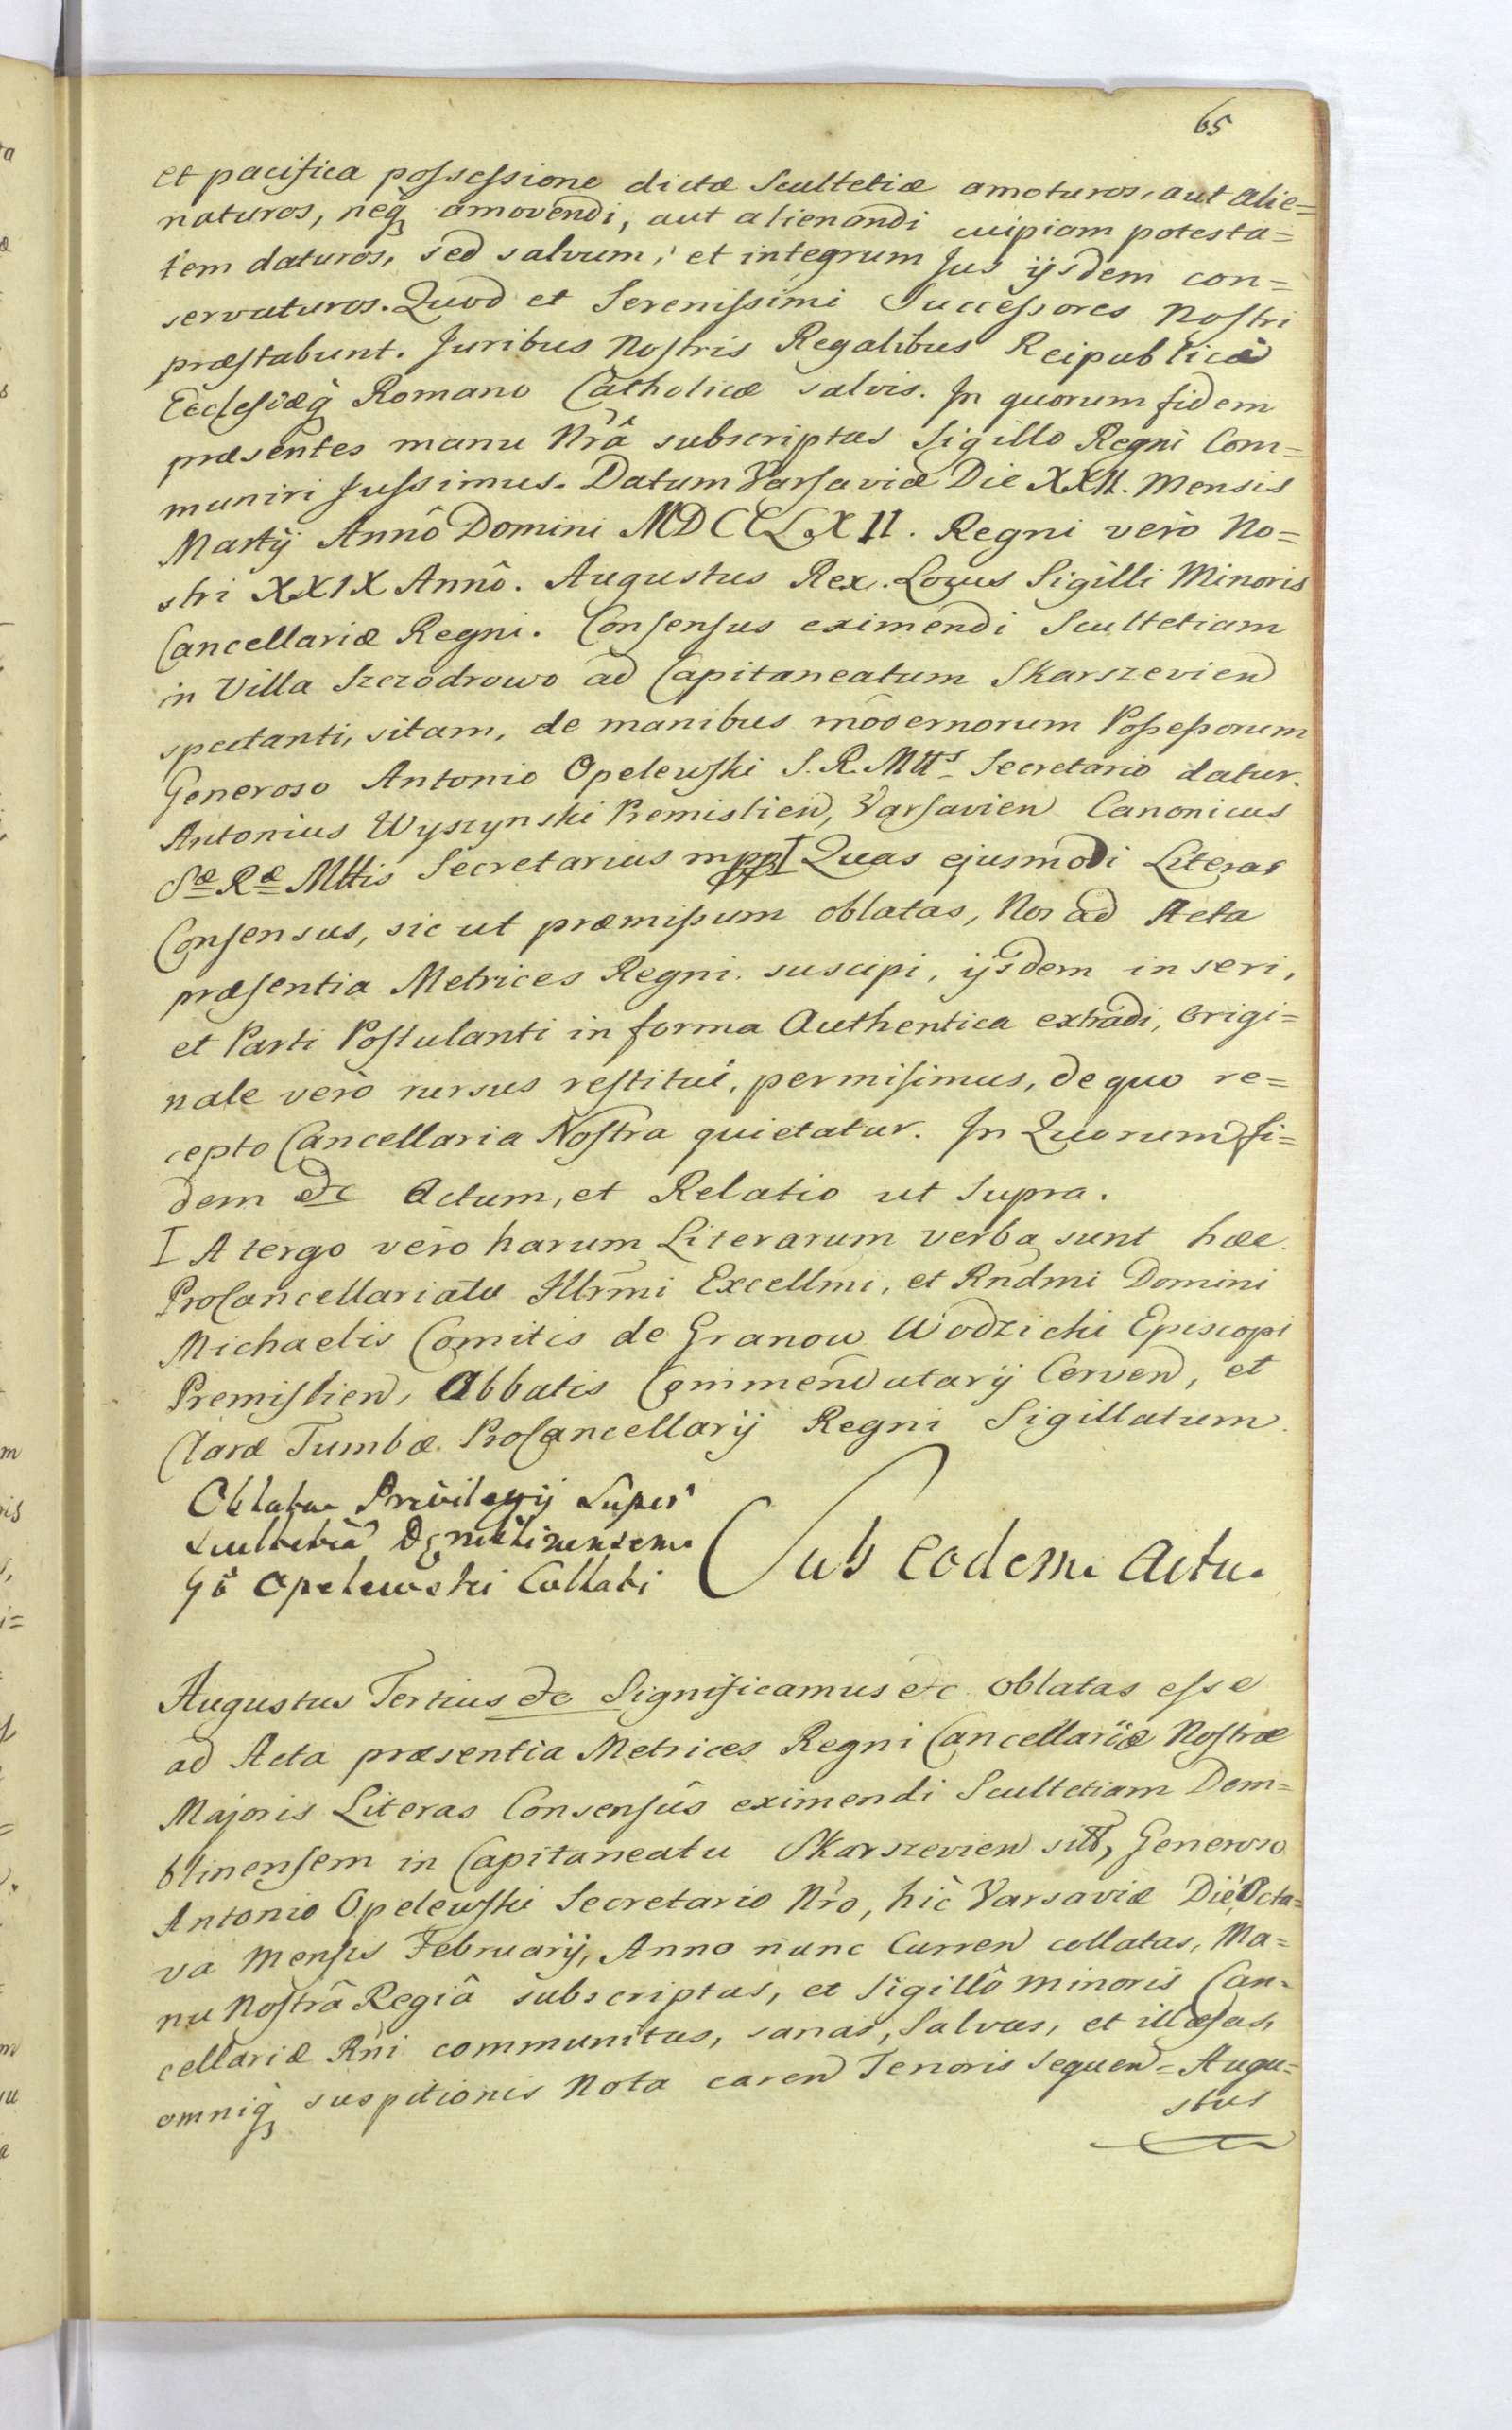 65
et pacifica possessione dictæ Scultetiæ amoturos, aut alie=
naturos, neq amovendi, aut alienandi cuipiam potesta=
tem daturos, sed salvum, et integrum Jus ijsdem con=
servaturos. Quod et Serenissimi Successores Nostri
præstabunt. Juribus Nostris Regalibus Reipublicæ
Ecclesiæq Romano Catholicæ salvis. In quorum fidem
præsentes manu Nrâ subscriptas Sigillo Regni Com=
muniri Jussimus. Datum Varsaviæ Die XXII. Mensis
Martij Annô Domini MDCCLXII. Regni verò No=
stri XXIX Annô. Augustus Rex. Locus Sigilli Minoris
Cancellariæ Regni. Consensus eximendi Scultetiam
in Villa Szczodrowo ad Capitaneatum Skarszevien
spectanti, sitam, de manibus modernorum Possessorum
Generoso Antonio Opelewski S. R. Mttis Secretario datur.
Antonius Wyszynski Premislien, Varsavien Canonicus
Sæ Ræ Mttis Secretarius mpp I Quas ejusmodi Literas
Consensus, sic ut præmissum oblatas, Nos ad Acta
præsentia Metrices Regni suscipi, ijsdem inseri,
et Parti Postulanti in forma Authentica extradi, Origi=
nale verò rursus restitui, permisimus, de quo re=
cepto Cancellaria Nostra quietatur. In Quorum fi=
dem etc Actum, et Relatio ut Supra.
I A tergo verò harum Literarum verba sunt hæc.
ProCancellariatu Illrmi Excellmi, et Rndmi Domini
Michaelis Comitis de Granow Wodzicki Episcopi
Premislien, Abbatis Commendatarij Cerven, et
Claræ Tumbæ ProCancellarij Regni Sigillatum.
Oblata Privilegij Super
Scultetiã Demblinensem
Gõ Opelewski Collati
Sub eodem Actu.
Augustus Tertius etc Significamus etc oblatas esse
ad Acta præsentia Metrices Regni Cancellariæ Nostræ
Majoris Literas Consensûs eximendi Scultetiam Dem=
blinensem in Capitaneatu Skarszevien sitt, Generoso
Antonio Opelewski Secretario Nrô, hic Varsaviæ Die Octa=
va Mensis Februarij, Anno nunc Curren collatas, Ma=
nu Nostrâ Regiâ subscriptas, et Sigillô minoris Can=
cellariæ Rni communitas, sanas, Salvas, et illæsas,
omniq suspitionis Nota caren Tenoris sequen = Augu=
stus